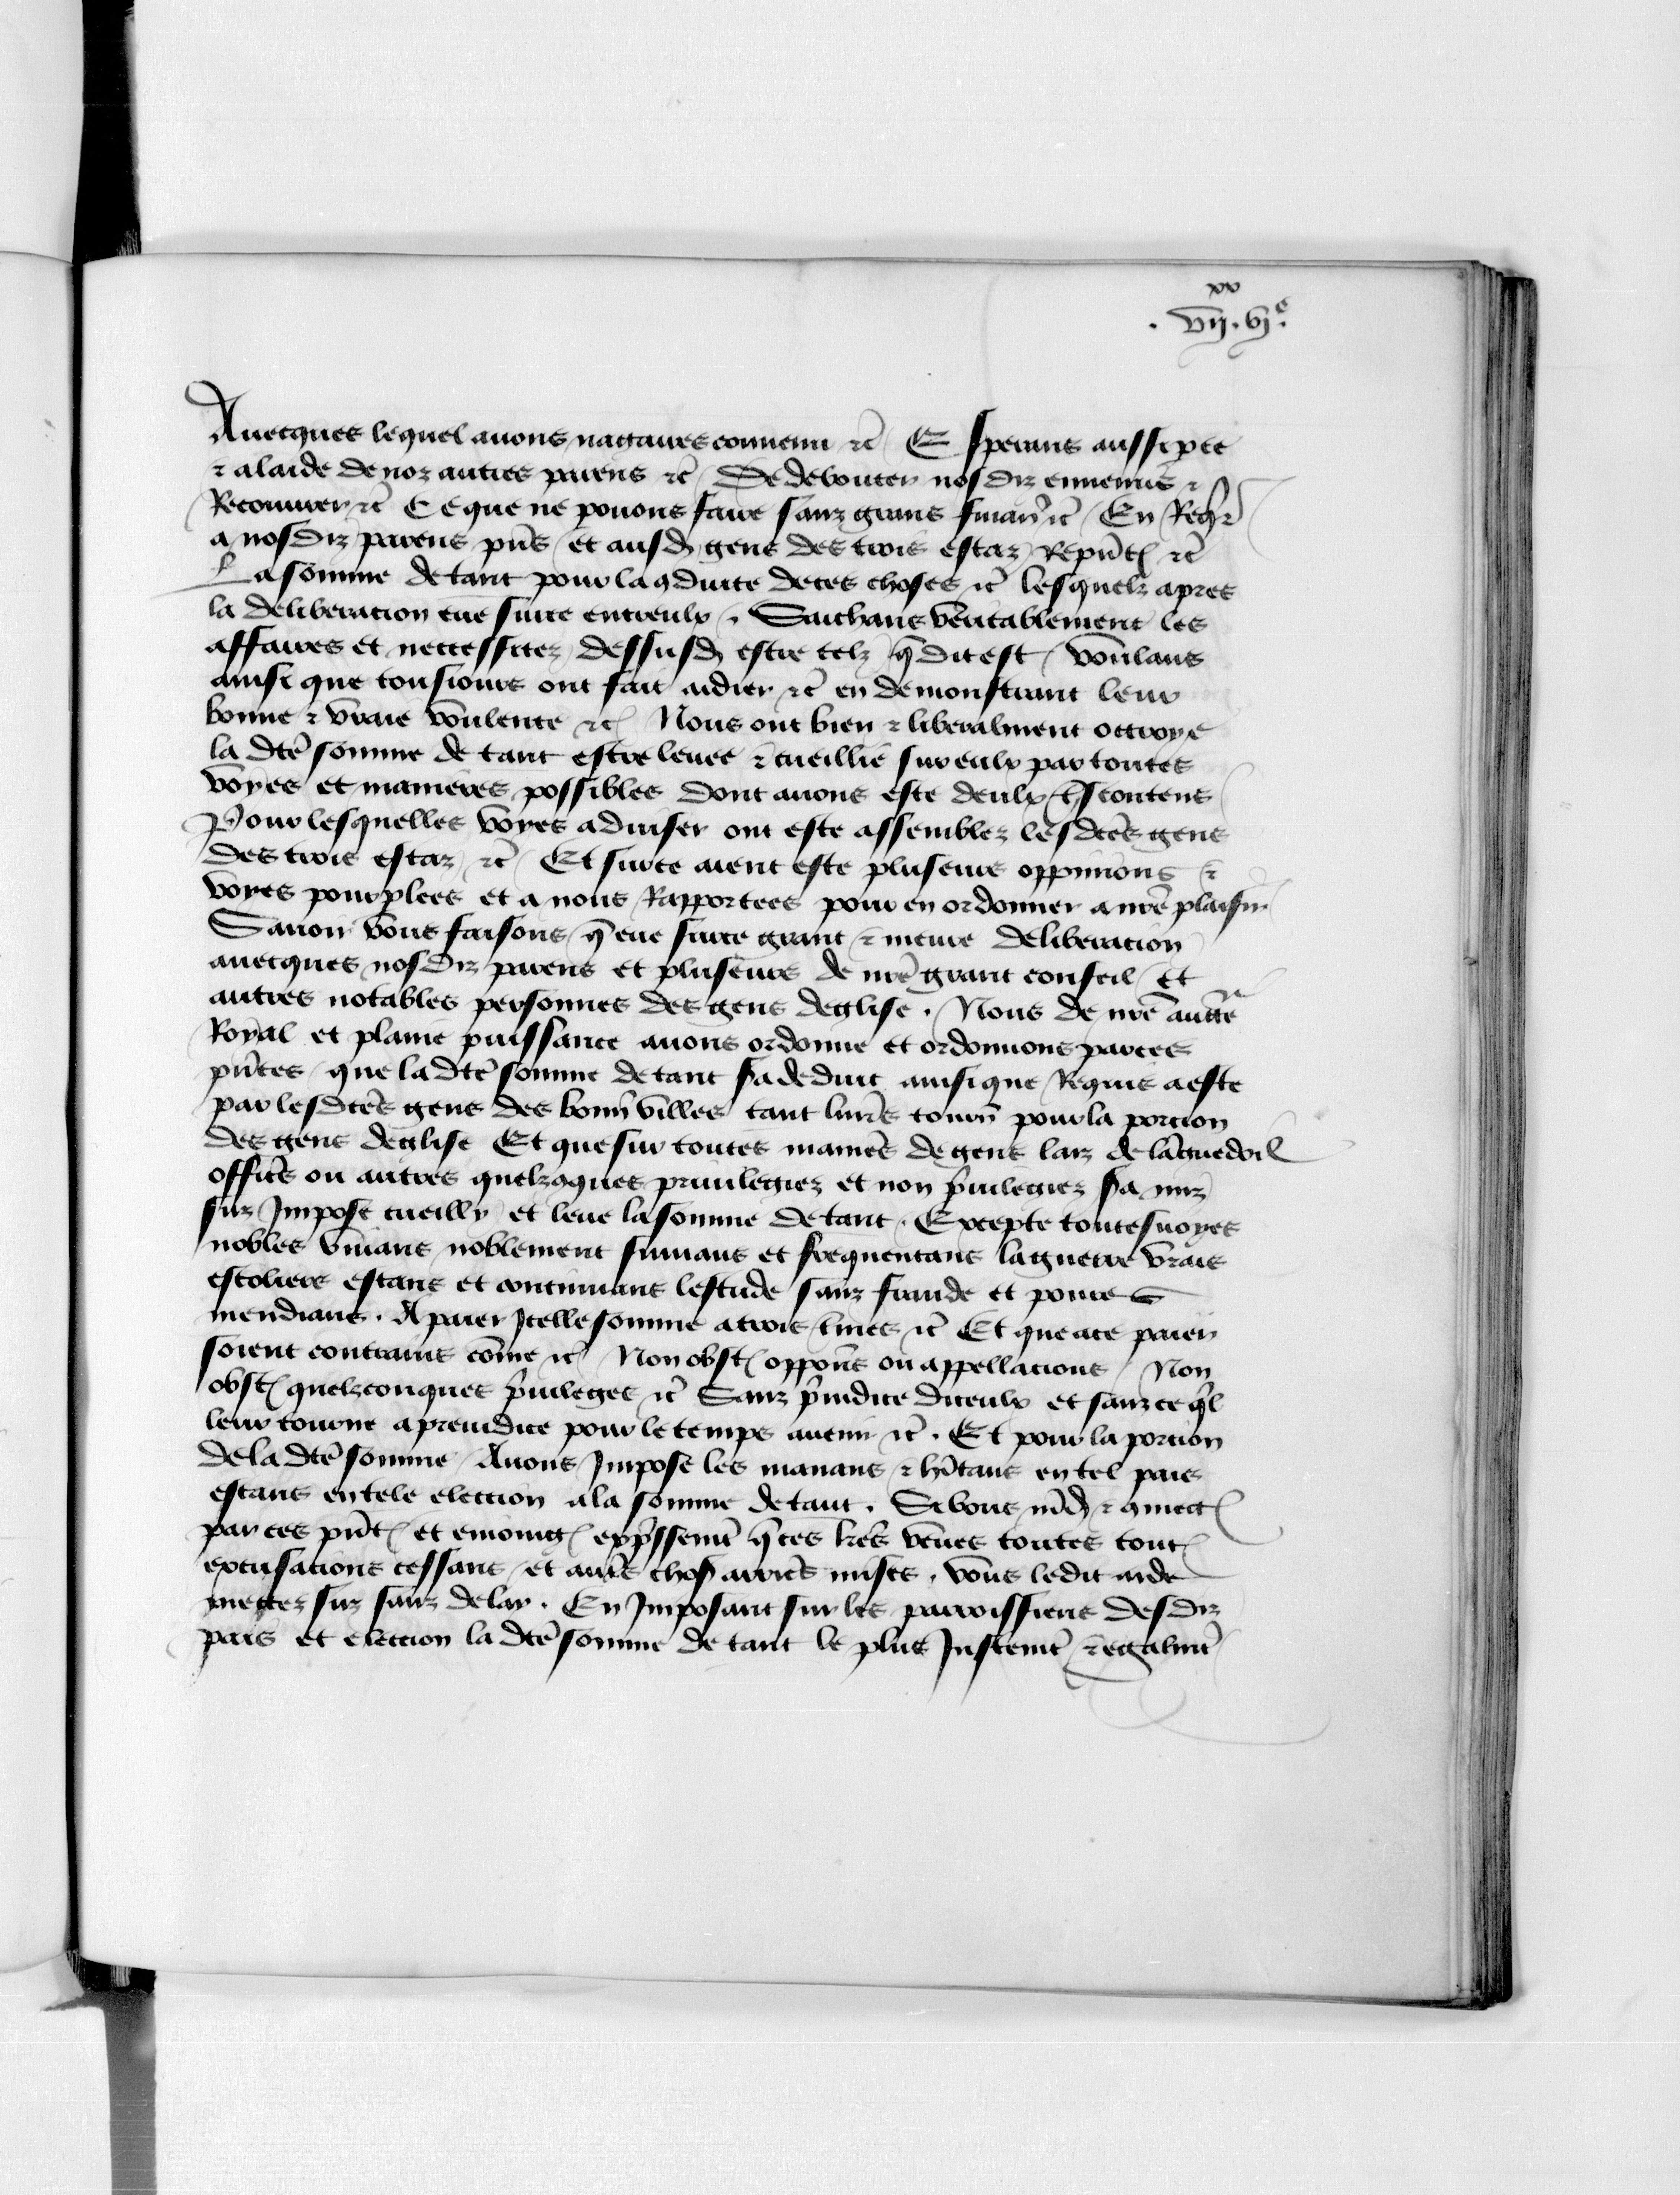 xx
. vii . vj e.
Auecques lequel auons nagaires conuenu etc̃ Esperans aussi p ce
⁊ alaide de noz autres parens ⁊c̃ De debouter nosdiz ennemis ⁊
Recouurer ⁊c̃ Ce que ne pouons faire sanz grans finan̄ ⁊c̃ En Req̃r̃
a nosdiz parens pñs et ausd gens des trois estaz Repñt ⁊c̃
La somme de tant pour la ꝯduite de ces choses ⁊c̃ lesquelz apres
la deliberacion eue sur ce entreulx . Saichans veritablement les
affaires et necessitez dessusd estre telz q̃ dit est voulans
ainsi que tousiours ont fait aidier ⁊c̃ en demonstrant leur
bonne ⁊ vraie voulente ⁊c Nous ont bien ⁊ liberalment octroye
la dc̃e somme de tant estre leuee ⁊ cueillie sur eulx par toutes
voyes et manieres possibles dont auons este deulx tr̃scontens
Pour lesquelles voyes aduiser ont este assemblez lesdc̃es gens
des trois estaz ⁊c̃ Et sur ce aient este pluseurs oppinions ⁊
voyes pourplees et a nous Rapportees pour en ordonner a nr̃e plaisir
Sauoir vous faisons q̃ eue sur ce grant ⁊ meure deliberacion
auecques nosdiz parens et pluseurs de nr̃e grant conseil et
autres notables personnes des gens deglise . Nous de nr̃e auctẽ
Royal et plaine puissance auons ordonne et ordonnons par ces
pñtes que la dc̃e somme de tant sa deduit ainsi que Requis a este
par lesdc̃es gens des bonn̄ villes tant liur̃s tourn̄ pour la porcion
des gens deglise Et que sur toutes manier̃s de gens laiz de languedoil
offic̃s ou autres quelzꝯques priuilegiez et non p̃uilegiez sa miz
sus Impose cueilly et leue la somme de tant . Excepte toutesuoyes
nobles viuans noblement suiuans et frequentans la guerre vrais
escoliers estans et continuans lestude sanz fraude et poures
mendians . A paier Icelle somme a trois t̃mes ⁊c̃ Et que a ce paier
soient contrains cõme ⁊c Non obst oppoñs ou appellacions Non
obst quelzconques p̃uileges ⁊c̃ Sanz p̃iudice diceulx et sanz ce q̃l
leur tourne a preiudice pour le temps auenir ⁊c̃ . Et pour la porcion
de la dc̃e somme Auons Impose les manans ⁊ hĩtans en tel pais
estans en tele election a la somme de tant . Si vous mãd ⁊ ꝯmect
par ces pñt et enioing exp̃ssemt̃ q̃ ces lr̃es veues toutes tout
excusacions cessans et autr̃s chos arrier̃s mises . vous ledit aide
mettez sus sanz delay . En Imposant sur les parroissiens desdiz
pais et election la dc̃e somme de tant le plus Justemt̃ ⁊ egalmt̃